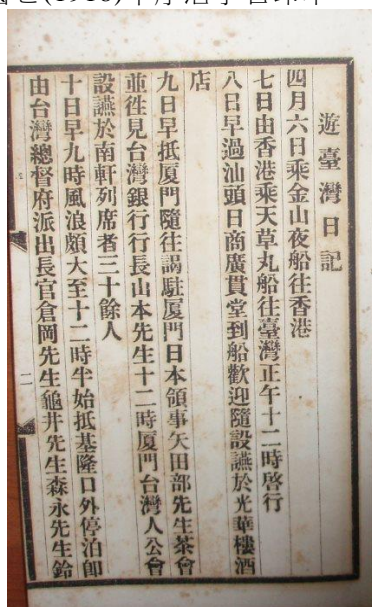 (1918)年
遊臺灣日記
四月六日乘金山夜船往香港
七日由香港乘天草丸船往臺灣正午十二時啓行
八日早過汕頭日商廣貫堂到船歡迎隨設讌於光華樓酒
店
九日早抵厦門隨往謁駐厦門日本領事矢田部先生茶會
並往見台灣銀行行長山本先生十二時厦門台灣人公會
設讌於南軒列席者三十餘人
十日早九時風浪頗大至十二時半始抵基隆口外停泊卽
由台灣總督府派出長官倉岡先生龜井先生森永先生鈴
二